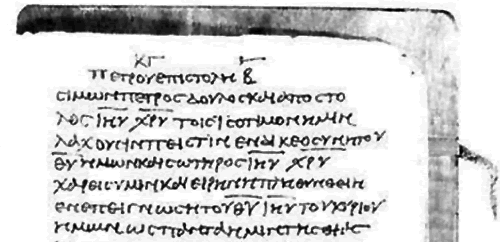 ΚΓ
ΠΕΤΡΟΥΕΠΙCΤΟΛΗ Β
CΙΜΩΝΠΕΤΡΟCΔΟΥΛΟCΚΑΙΑΠΟCΤΟ
ΛΟC ΙΗΥ ΧΡΥ ΤΟΙCΙCΟΤΙΜΟΝΗΜΙΝ
ΛΑΧΟΥCΙΝΠΕΙCΤΙΝ ΕΝΔΙΚΕΟCΥΝΗΤΟΥ
ΘΥ ΗΜΩΝΚΑΙCΩΤΗΡΟC ΙΗΥ ΧΡΥ
ΧΑΡΕΙCΥΜΙΝΚΑΙΕΙΡΗΝΗΠΛΗΘΥΝΘΕΙΗ
ΕΝΕΠΕΙΓΝΩCΗΤΟΥΘΥ ΙΗΥ ΤΟΥΚΥΡΙΟΥ
ΗΜΩΝΩCΠΑΝΤΑΗΜΙΝΤΗCΘΙΑC